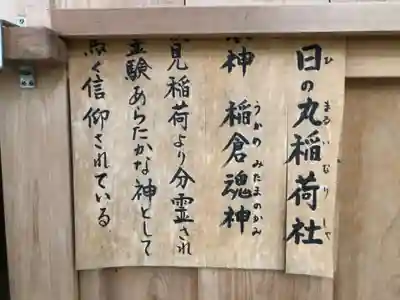 日の丸稲荷社
ひのまるいなりしゃ
神 稲倉魂神
うかのみたまのかみ
見稲荷より分霊され
霊験あらたかな神として
く信仰されている